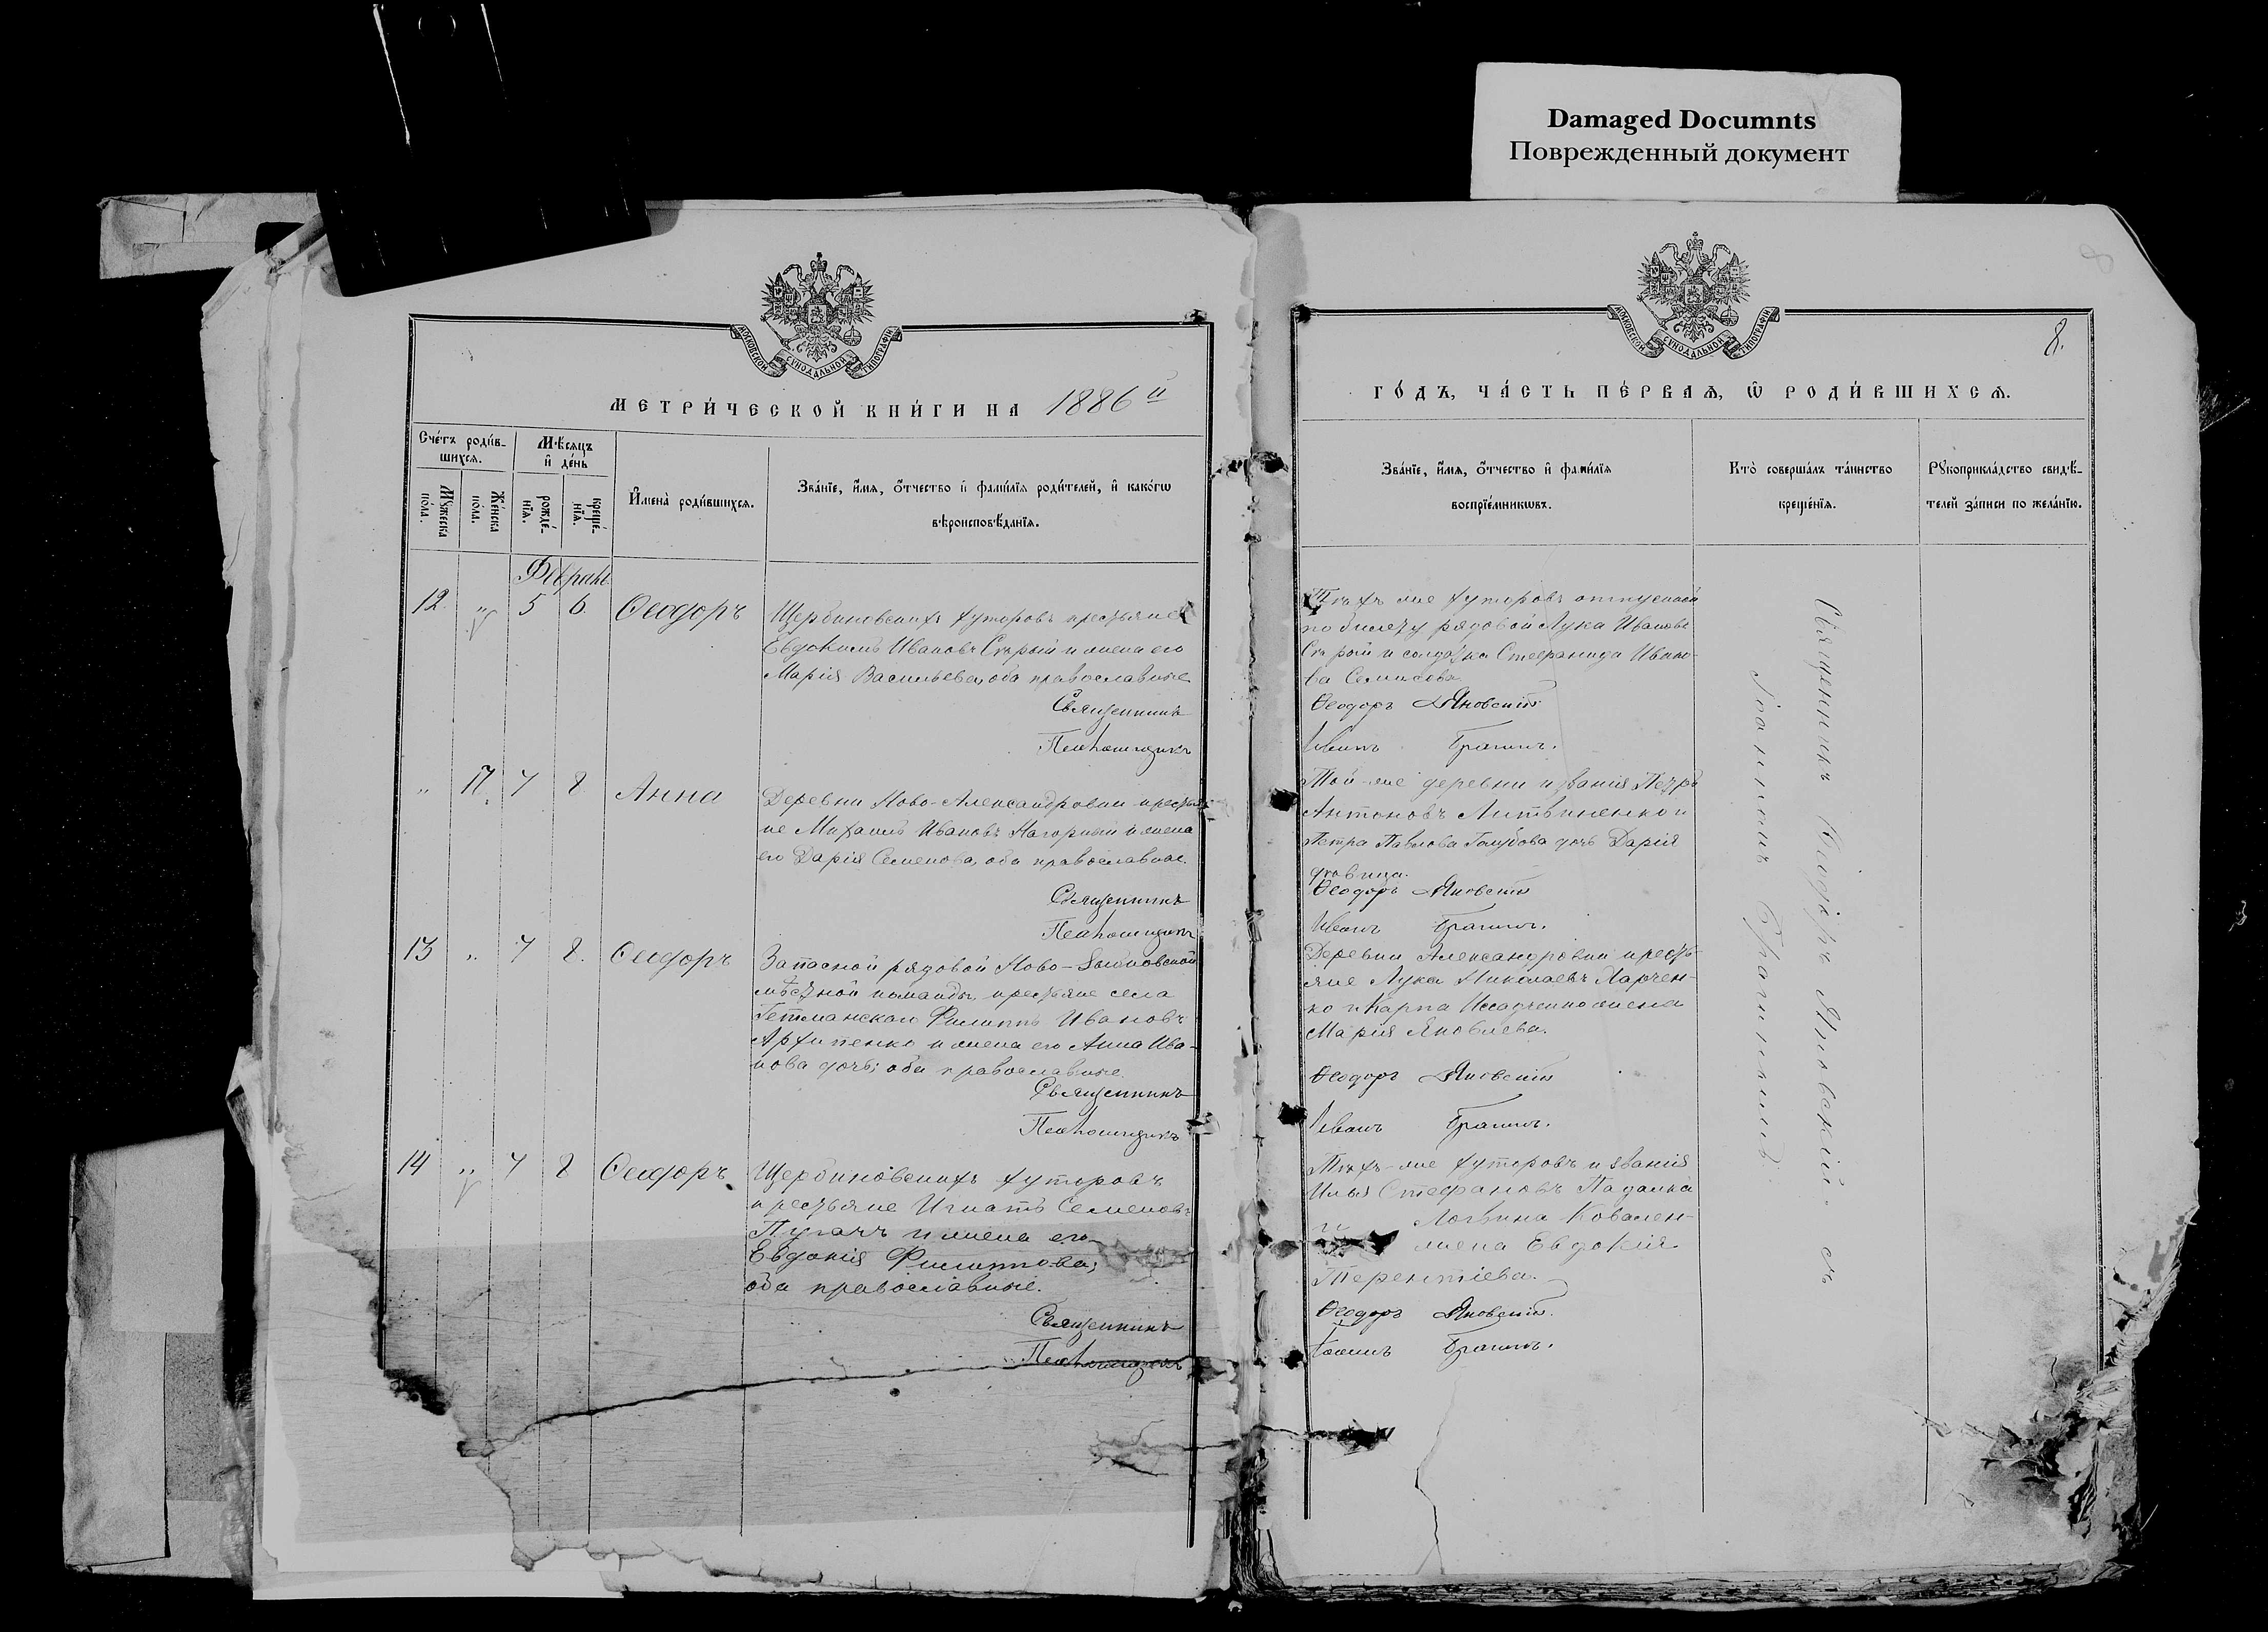 Damaged Documnts
Поврежденный документ
МОСКОВСКОЙ СѴНОДАЛЬНОЙ ТИПОГРАФІИ
МЕТРИ́ЧЕСКОЙ КНИ́ГИ НА 1886 й
Сче́тъ роди́в-
шихсѧ.
Мѣ́сѧцъ
и҆ де́нь
Мꙋ́жеска
по́ла.
Же́нска
по́ла.
рожде́-
нїѧ.
креще́-
нїѧ.
И҆мена̀ роди́вшихсѧ.
Зва́нїе, и҆́мѧ, ѻ҆́тчество и҆ фамилїѧ роди́телей, и҆ како́гѡ
вѣроисповѣ́данїѧ.
Февраль
12 " 5 6. Ѳеодоръ
Щербиновскихъ хуторовъ крестьянинъ
Евдокимъ Ивановъ Старый и жена его
Марія Васильева, оба православные
Священникъ
Псаломщикъ
" 17. 7 8 Анна
Деревни Ново-Александровки крестья-
не Михаилъ Ивановъ Нагорный и жена
его Дарія Семенова, оба православные.
Священникъ
Псаломщикъ
13 " 7 8. Ѳеодоръ
Запасной рядовой Ново-
мѣстной команды, крестьяне села
Гетманскаго Филиппъ Ивановъ
Архипенко и жена его Анна Ива-
нова дочь; оба православные.
Священникъ
Псаломщикъ
14 " 7 8 Ѳеодоръ
Щербиновскихъ хуторовъ
крестьяне Игнатъ Семеновъ
Пугачъ и жена его
Евдокія Филиппова;
оба православные.
Священникъ
Псаломщикъ
МОСКОВСКОЙ СѴНОДАЛЬНОЙ ТИПОГРАФІИ
8.
ГО́ДЪ, ЧА́СТЬ ПЕ́РВАѦ, Ѡ҆ РОДИ́ВШИХСѦ.
Зва́нїе, и҆́мѧ, ѻ҆́тчество и҆ фами́лїѧ
воспрїе́мникѡвъ.
Кто̀ соверша́лъ та́инство
креще́нїѧ.
Рꙋкоприкла́дство свидѣ́-
телей за́писи по жела́нїю.
Тѣхъ же хуторовъ отпускной
по билету рядовой Лука Ивановъ
Старый и солдатка Стефанида Ивано-
ва
Ѳеодоръ Яновскій
Иванъ
Той-же деревни и званія Петръ
Антоновъ Литвиненко и
Петра Павлова Голубова дочь Дарія
дѣвица.
Ѳеодоръ Яновскій
Иванъ
Деревни Александровки кресть-
яне Лука Николаевъ Харчен-
ко и Карпа жена
Марія Яковлева.
Ѳеодоръ Яновскій
Иванъ
Тѣхъ-же хуторовъ и званія
Илья Стефановъ Падалка
и Логвина Ковален-
жена Евдокія
Терентіева.
Ѳеодоръ Яновскій.
Священникъ Ѳеодоръ Яновскій съ